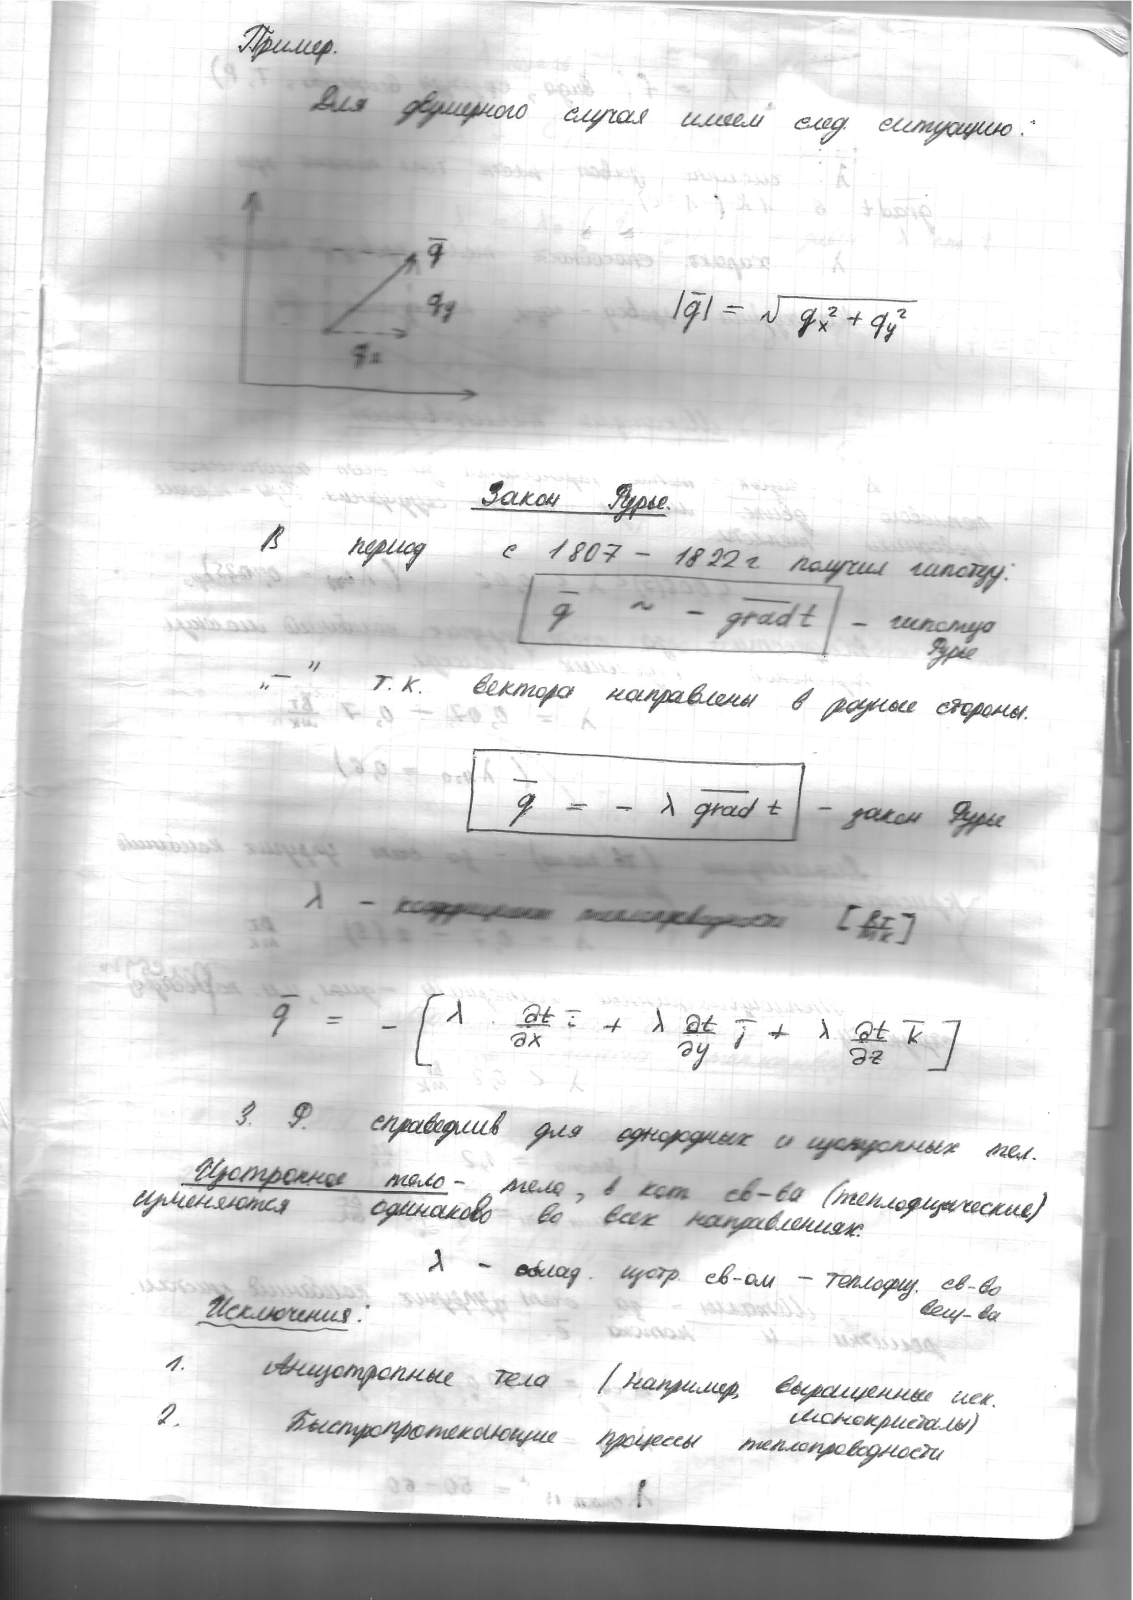 Пример.
Для двумерного случая имеем след. ситуацию:
q̄
q_y
q_x
|q̄| = √(q_x² + q_y²)
Закон Фурье.
В период с 1807 – 1822 г получил гипотезу:
q̄ ~ – grad t – гипотеза
Фурье
„–” т.к. вектора направлены в разные стороны.
q̄ = – λ grad t – закон Фурье
λ – коэффициент теплопроводности [Вт/мК]
q̄ = – [λ · ∂t/∂x ī + λ ∂t/∂y j̄ + λ ∂t/∂z k̄]
З. Ф. справедлив для однородных и изотропных тел.
Изотропное тело – тело, в кот св-ва (теплофизические)
изменяются одинаково во всех направлениях.
λ – облад. изотр. св-ом – теплофиз. св-во
вещ-ва
Исключения:
1. Анизотропные тела (например, выращенные иск.
монокристалы)
2. Быстропротекающие процессы теплопроводности